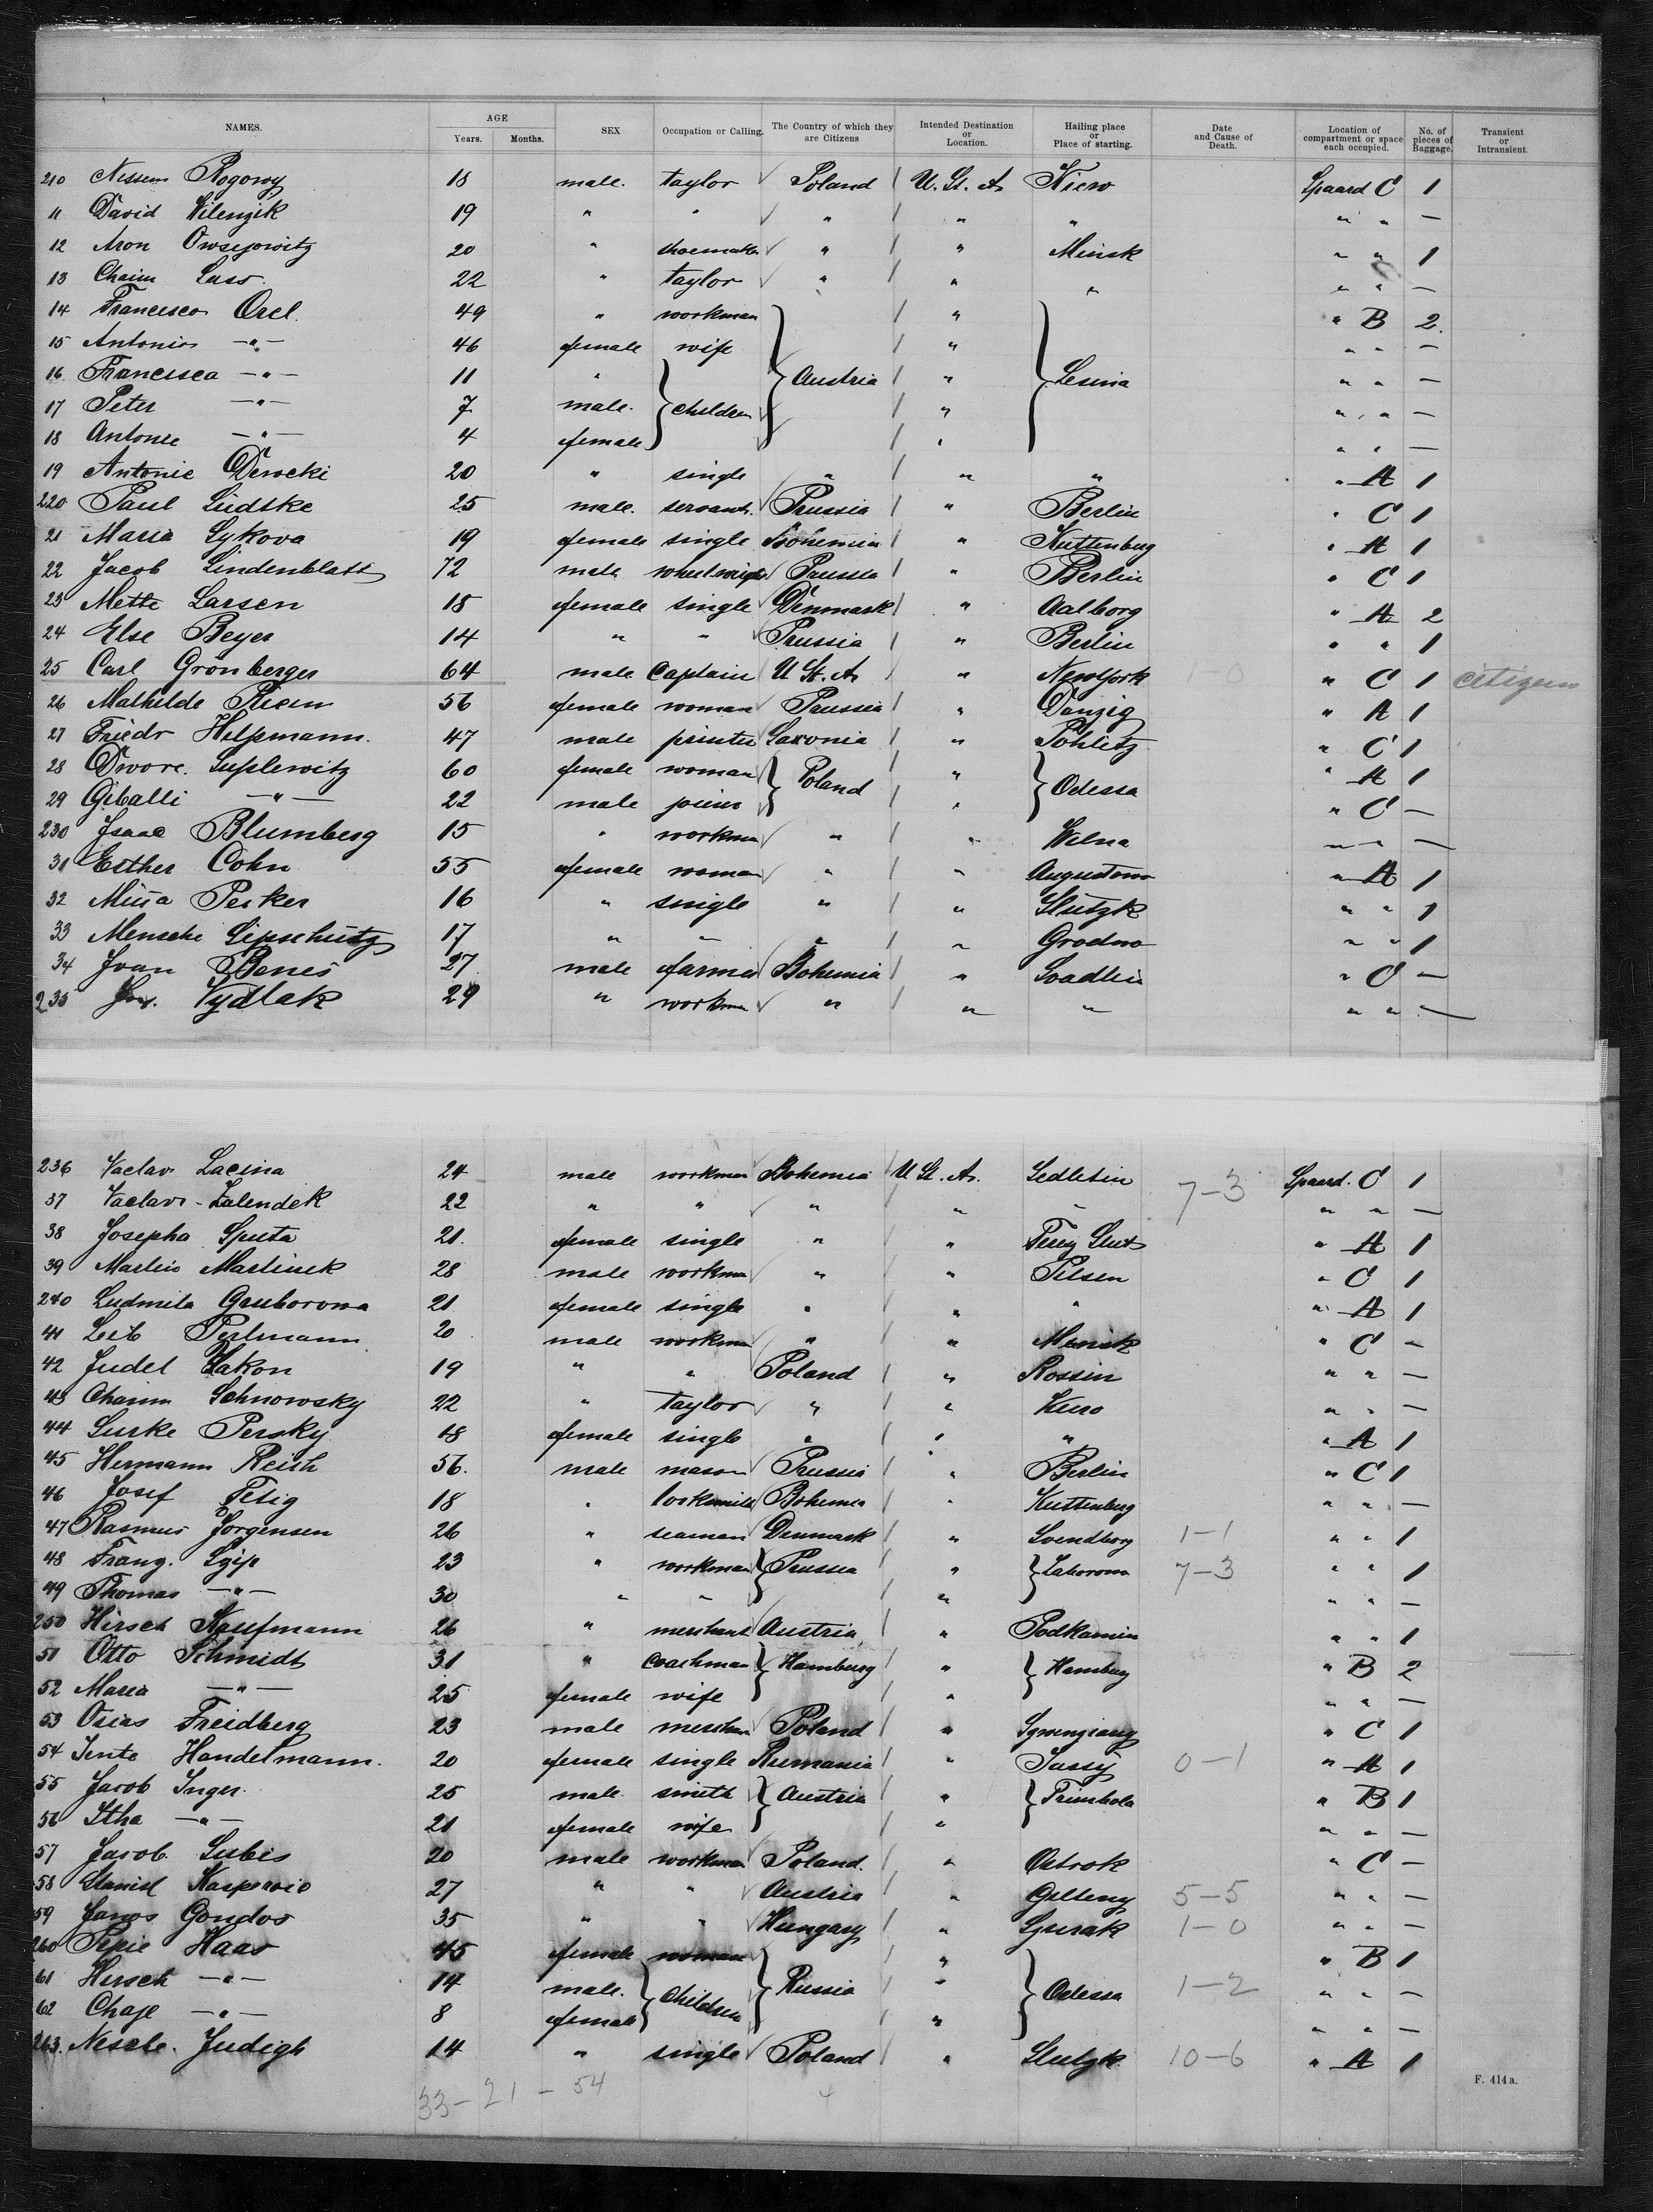 NAMES. AGE SEX Occupation or Calling. The Country of which they are Citizens Intended Destination or Location. Hailing place or Place of starting. Date and Cause of Death. Location of compartment or space each occupied. No. of pieces of Baggage. Transient or Intransient
Years. Months.
210 Nissem Rogowy 18 male. taylor Poland U. St. A. Kiew Spaard C 1
11 David Wilenzik 19 " " " " " " " —
12 Aron Owsejowitz 20 " shoemaker " " Minsk " " 1
13 Chaim Lass 22 " taylor " " " " " —
14 Francesco Orel. 49 " workman " " B 2.
15 Antonia —"— 46 female wife " " " —
16 Francisca —"— 11 " Austria " Lesina " " —
17 Peter —"— 7 male. children " " " —
18 Antonie —"— 4 female " " " —
19 Antonie 20 " single " " " " A 1
220 Paul Lüdtke 25 male. servant. Prussia " Berlin " C 1
21 Maria Lykova 19 female single Bohemia " Kuttenberg " A 1
22 Jacob Lindenblatt 72 male wheelwright Prussia " Berlin " C 1
23 Mette Larsen 18 female single Denmark " Aalborg " A 2
24 Else Beyer 14 " " Prussia " Berlin " " 1
25 Carl Grönberger 64 male Captain U St. A. " New York 1-0 " C 1 citizen
26 Mathilde 56 female woman Prussia " Danzig " A 1
27 Friedr Helpmann. 47 male printer Saxonia " Pohlitz " C 1
28 Dwore. Suplewitz 60 female woman Poland " Odessa " A 1
29 Giballi —"— 22 male joiner " " C —
230 Isaac Blumberg 15 " workman " " Wilna " " —
31 Esther Cohn 55 female woman " " Augustowo " A 1
32 Perker 16 " single " " Slutzk " " 1
33 Mensche Lipschutz 17 " " " " Grodno " " 1
34 Ivan Benes 27 male farmer Bohemia " " C —
235 Vydlak 29 " workman " " " " " —
236 Vaclav Lacina 24 male workman Bohemia U St. A. Sedletin 7-3 Spaard. C 1
37 Vaclav Zalendek 22 " " " " " " " —
38 Josepha Sputa 21. female single " " " A 1
39 Martin Martinek 28 male workman " " Pilsen " C 1
240 Ludmila Gruborowa 21 female single " " " " A 1
41 Leib Perlmann 20 male workman " " Minsk " C —
42 Judel Hakon 19 " " Poland " Rossin " " —
43 Chaim Schnowsky 22 " taylor " " " " —
44 Surke Persky 18 female single " " " " A 1
45 Hermann Reish 56. male mason Prussia " Berlin " C 1
46 Josef Fetig 18 " Bohemia " Kuttenberg " " —
47 Rasmus Jorgensen 26 " seaman Denmark " Svendborg 1-1 " " 1
48 Franz. 23 " workman Prussia " 7-3 " " 1
49 Thomas —"— 30 " " " " " —
250 Hirsch Kaufmann 26 " merchant Austria " Podkamin " " 1
51 Otto Schmidt 31 " Coachman Hamburg " Hamburg " B 2
52 Maria —"— 25 female wife " " " —
53 Osias Freidberg 23 male merchan Poland " " C 1
54 Jente Handelmann. 20 female single Rumania " Jassy 0-1 " A 1
55 Jacob Inger. 25 male smith Austria " Trimbola " B 1
56 Itha —"— 21 female wife " " " —
57 Jacob. Lubis 20 male workman Poland. " Ostrok " C —
58 27 " " Austria " 5-5 " " —
59 Janos Gondos 35 " " Hungary " 1-0 " " —
260 Pepie Haas 45 female woman " " B 1
61 Hersch —"— 14 male. Children Russia " Odessa 1-2 " " —
62 Chaje —"— 8 female " " " —
263. 14 " single Poland " Slutzk 10-6 " A 1
33-21-54
F. 414a.